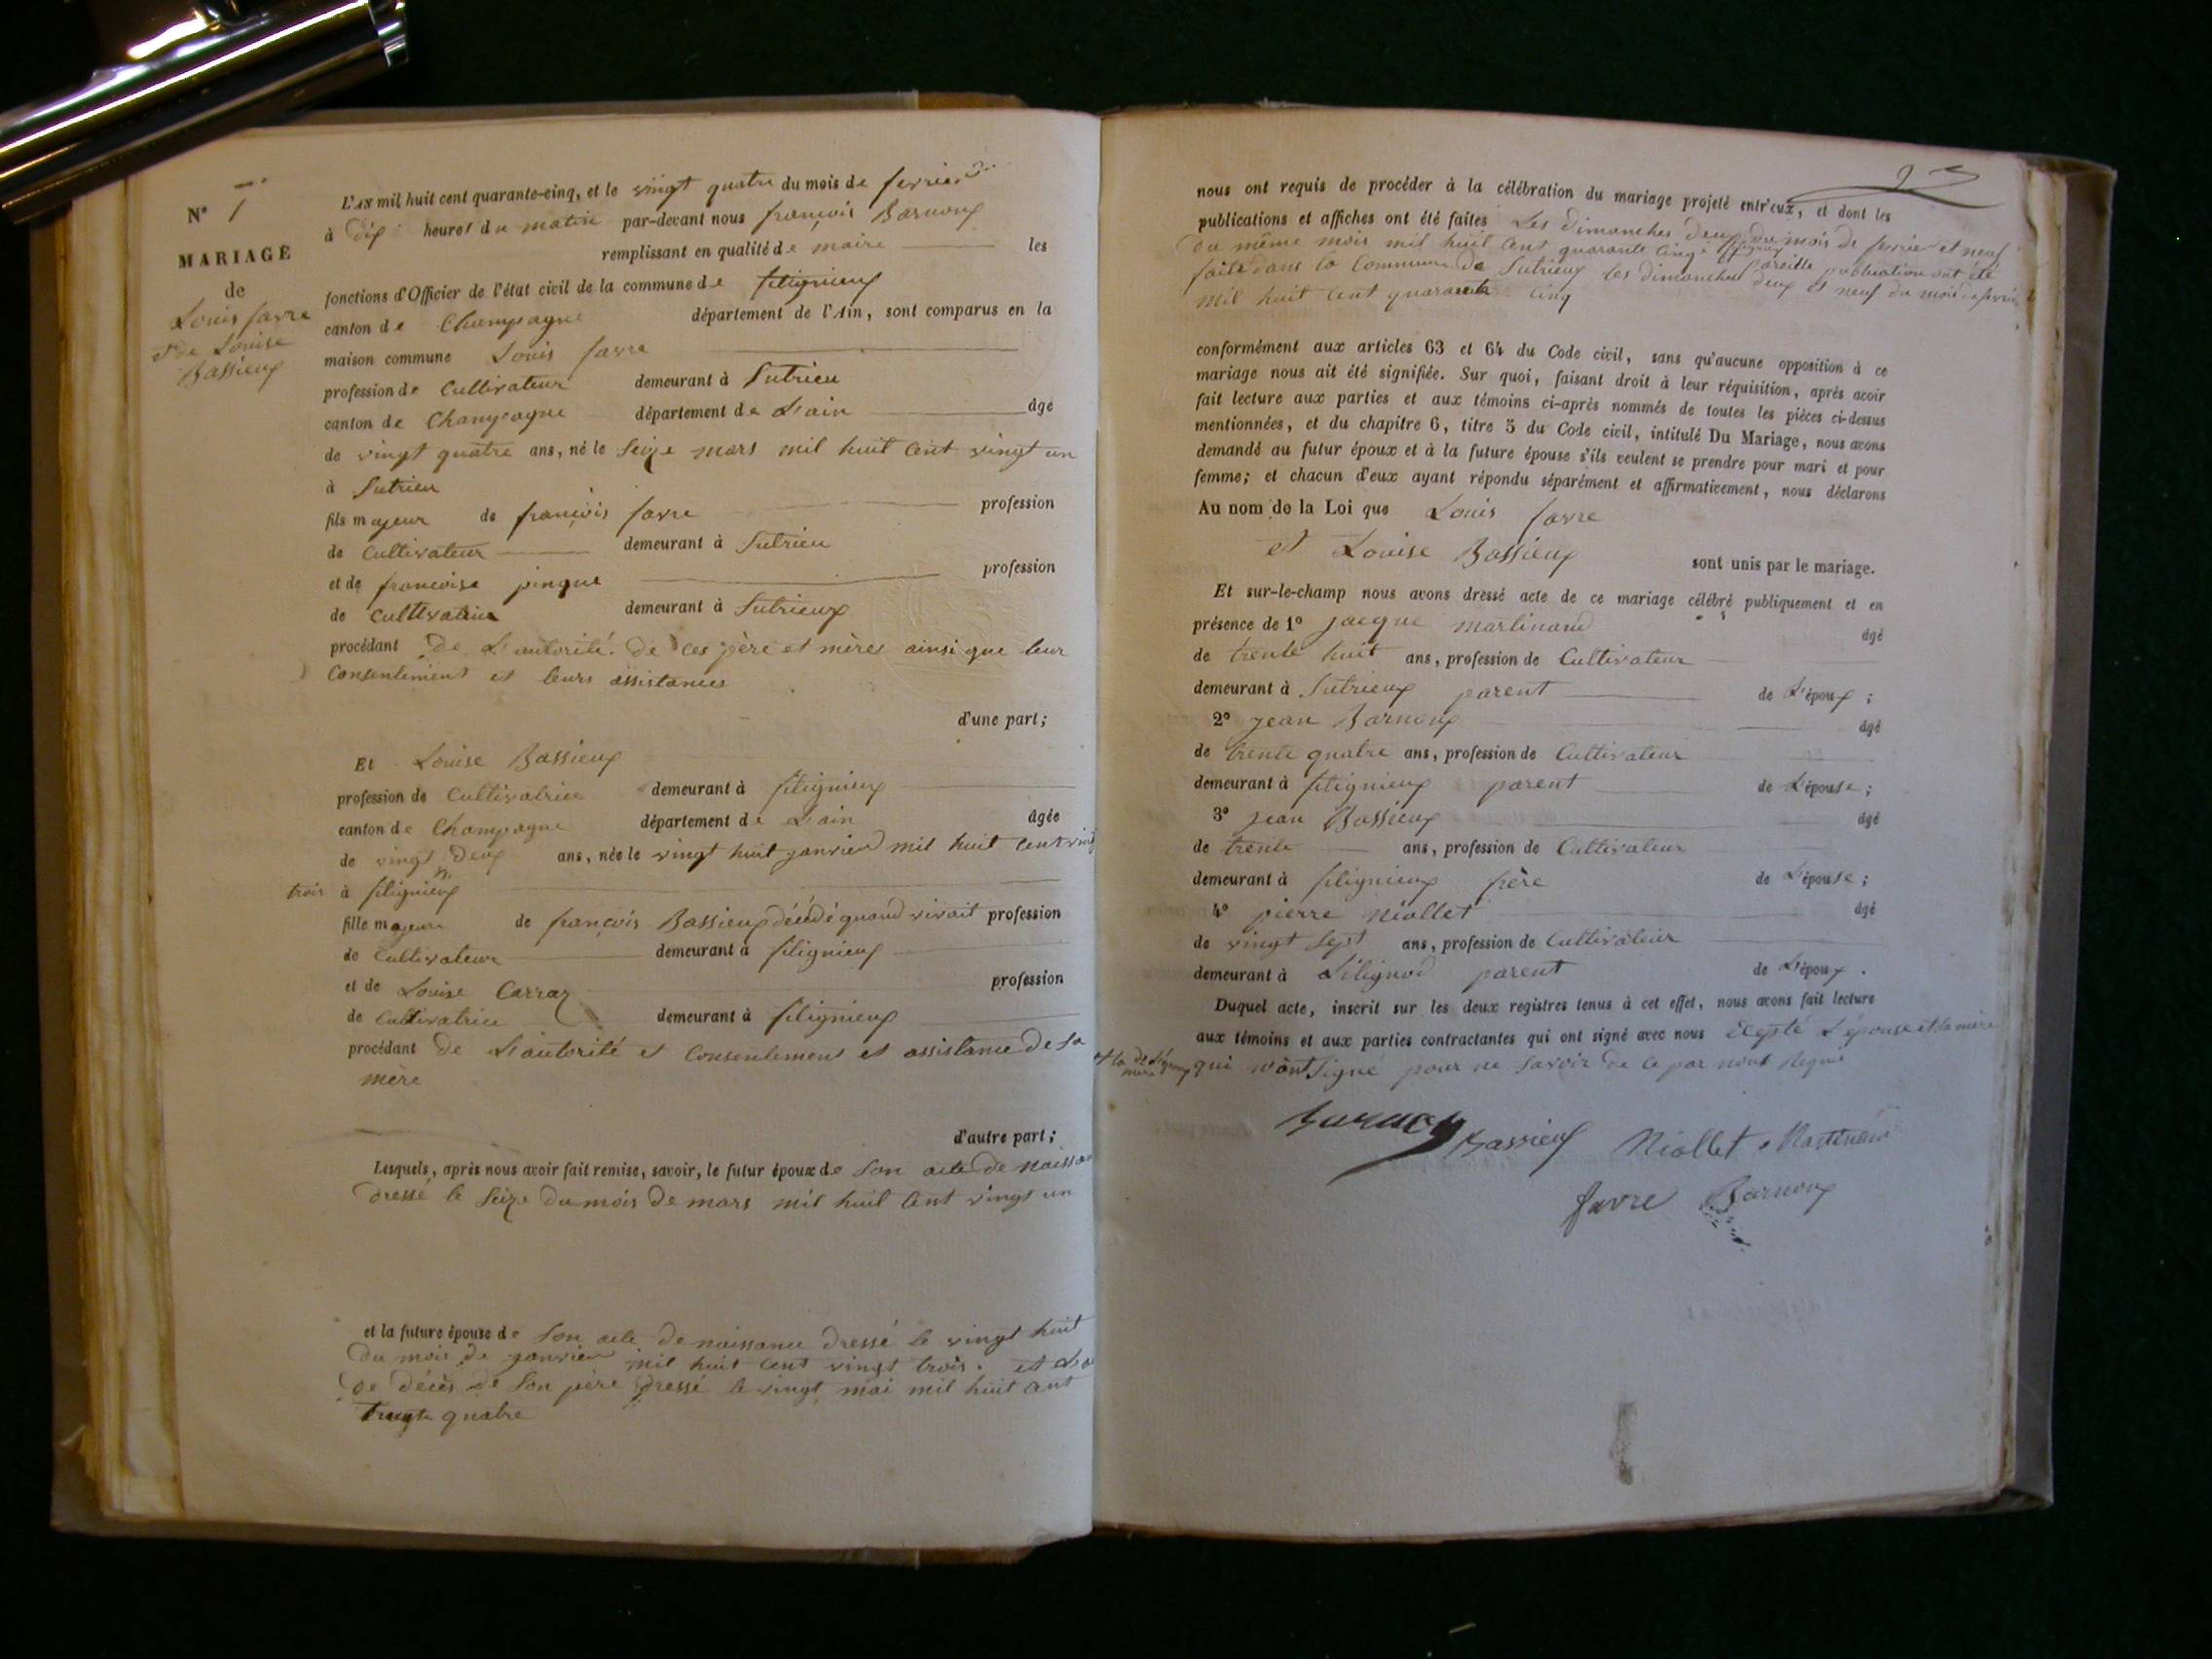 N° 1
MARIAGE
de
Louis favre
et de Louise
Bassieux
L'AN mil huit cent quarante-cinq, et le vingt quatre du mois de fevrier
à dix heures du matin par-devant nous françois Barnoux
remplissant en qualité de maire les
fonctions d'Officier de l'état civil de la commune de fitignieux
canton de Champagne département de l'Ain, sont comparus en la
maison commune Louis favre
profession de Cultivateur demeurant à Sutrieu
canton de Champagne département de L'ain âgé
de vingt quatre ans, né le Seize mars mil huit Cent vingt un
à Sutrieu
fils majeur de françois favre profession
de Cultivateur demeurant à Sutrieu
et de francoise pingue profession
de Cultivateur demeurant à Sutrieux
procédant de L'autorité de ces père et mères ainsi que leur
Consentement et leurs assistances
d'une part;
Et Louise Bassieux
profession de Cultivatrice demeurant à fitignieux
canton de Champagne département de L'ain âgée
de vingt deux ans, née le vingt huit janvier mil huit Cent vingt
trois à fitignieux
fille majeure de françois Bassieux décédé quand vivait profession
de Cultivateur demeurant à fitignieux
et de Louise Carraz profession
de Cultivatrice demeurant à fitignieux
procédant de L'autorité et Consentement et assistance de Sa
mère
d'autre part;
Lesquels, après nous avoir fait remise, savoir, le futur époux de Son acte de naissan
dressé le Seize du mois de mars mil huit Cent vingt un
et la future épouse de Son acte de naissance dressé le vingt huit
du mois de janvier mil huit Cent vingt trois. et
de décès de Son père dressé le vingt mai mil huit Cent
quatre
23
nous ont requis de procéder à la célébration du mariage projeté entr'eux, et dont les
publications et affiches ont été faites Les dimanches deux du mois de fevrier et neuf
du même mois mil huit Cent quarante Cinq pareille publication ont été
faite dans la Commune de Sutrieux les dimanches deux et neuf du mois de fevrier
mil huit Cent quarante Cinq
conformément aux articles 63 et 64 du Code civil, sans qu'aucune opposition à ce
mariage nous ait été signifiée. Sur quoi, faisant droit à leur réquisition, après avoir
fait lecture aux parties et aux témoins ci-après nommés de toutes les pièces ci-dessus
mentionnées, et du chapitre 6, titre 5 du Code civil, intitulé Du Mariage, nous avons
demandé au futur époux et à la future épouse s'ils veulent se prendre pour mari et pour
femme; et chacun d'eux ayant répondu séparément et affirmativement, nous déclarons
Au nom de la Loi que Louis favre
et Louise Bassieux sont unis par le mariage.
Et sur-le-champ nous avons dressé acte de ce mariage célébré publiquement et en
présence de 1° jacque martinand âgé
de trente huit ans, profession de Cultivateur
demeurant à Sutrieux parent de L'époux;
2° jean Barnoux âgé
de trente quatre ans, profession de Cultivateur
demeurant à fitignieux parent de L'épouse;
3° jean Bassieux âgé
de trente ans, profession de Cultivateur
demeurant à fitignieux frère de L'épouse;
4° pierre niollet âgé
de vingt Sept ans, profession de Cultivateur
demeurant à Lilignod parent de L'époux.
Duquel acte, inscrit sur les deux registres tenus à cet effet, nous avons fait lecture
aux témoins et aux parties contractantes qui ont signé avec nous Ecepté L'épouse et la mère
et la mère de L'époux qui n'ont Signé pour ne Savoir de ce par nous requis
Barnoux Bassieux Niollet Martinand
favre Barnoux